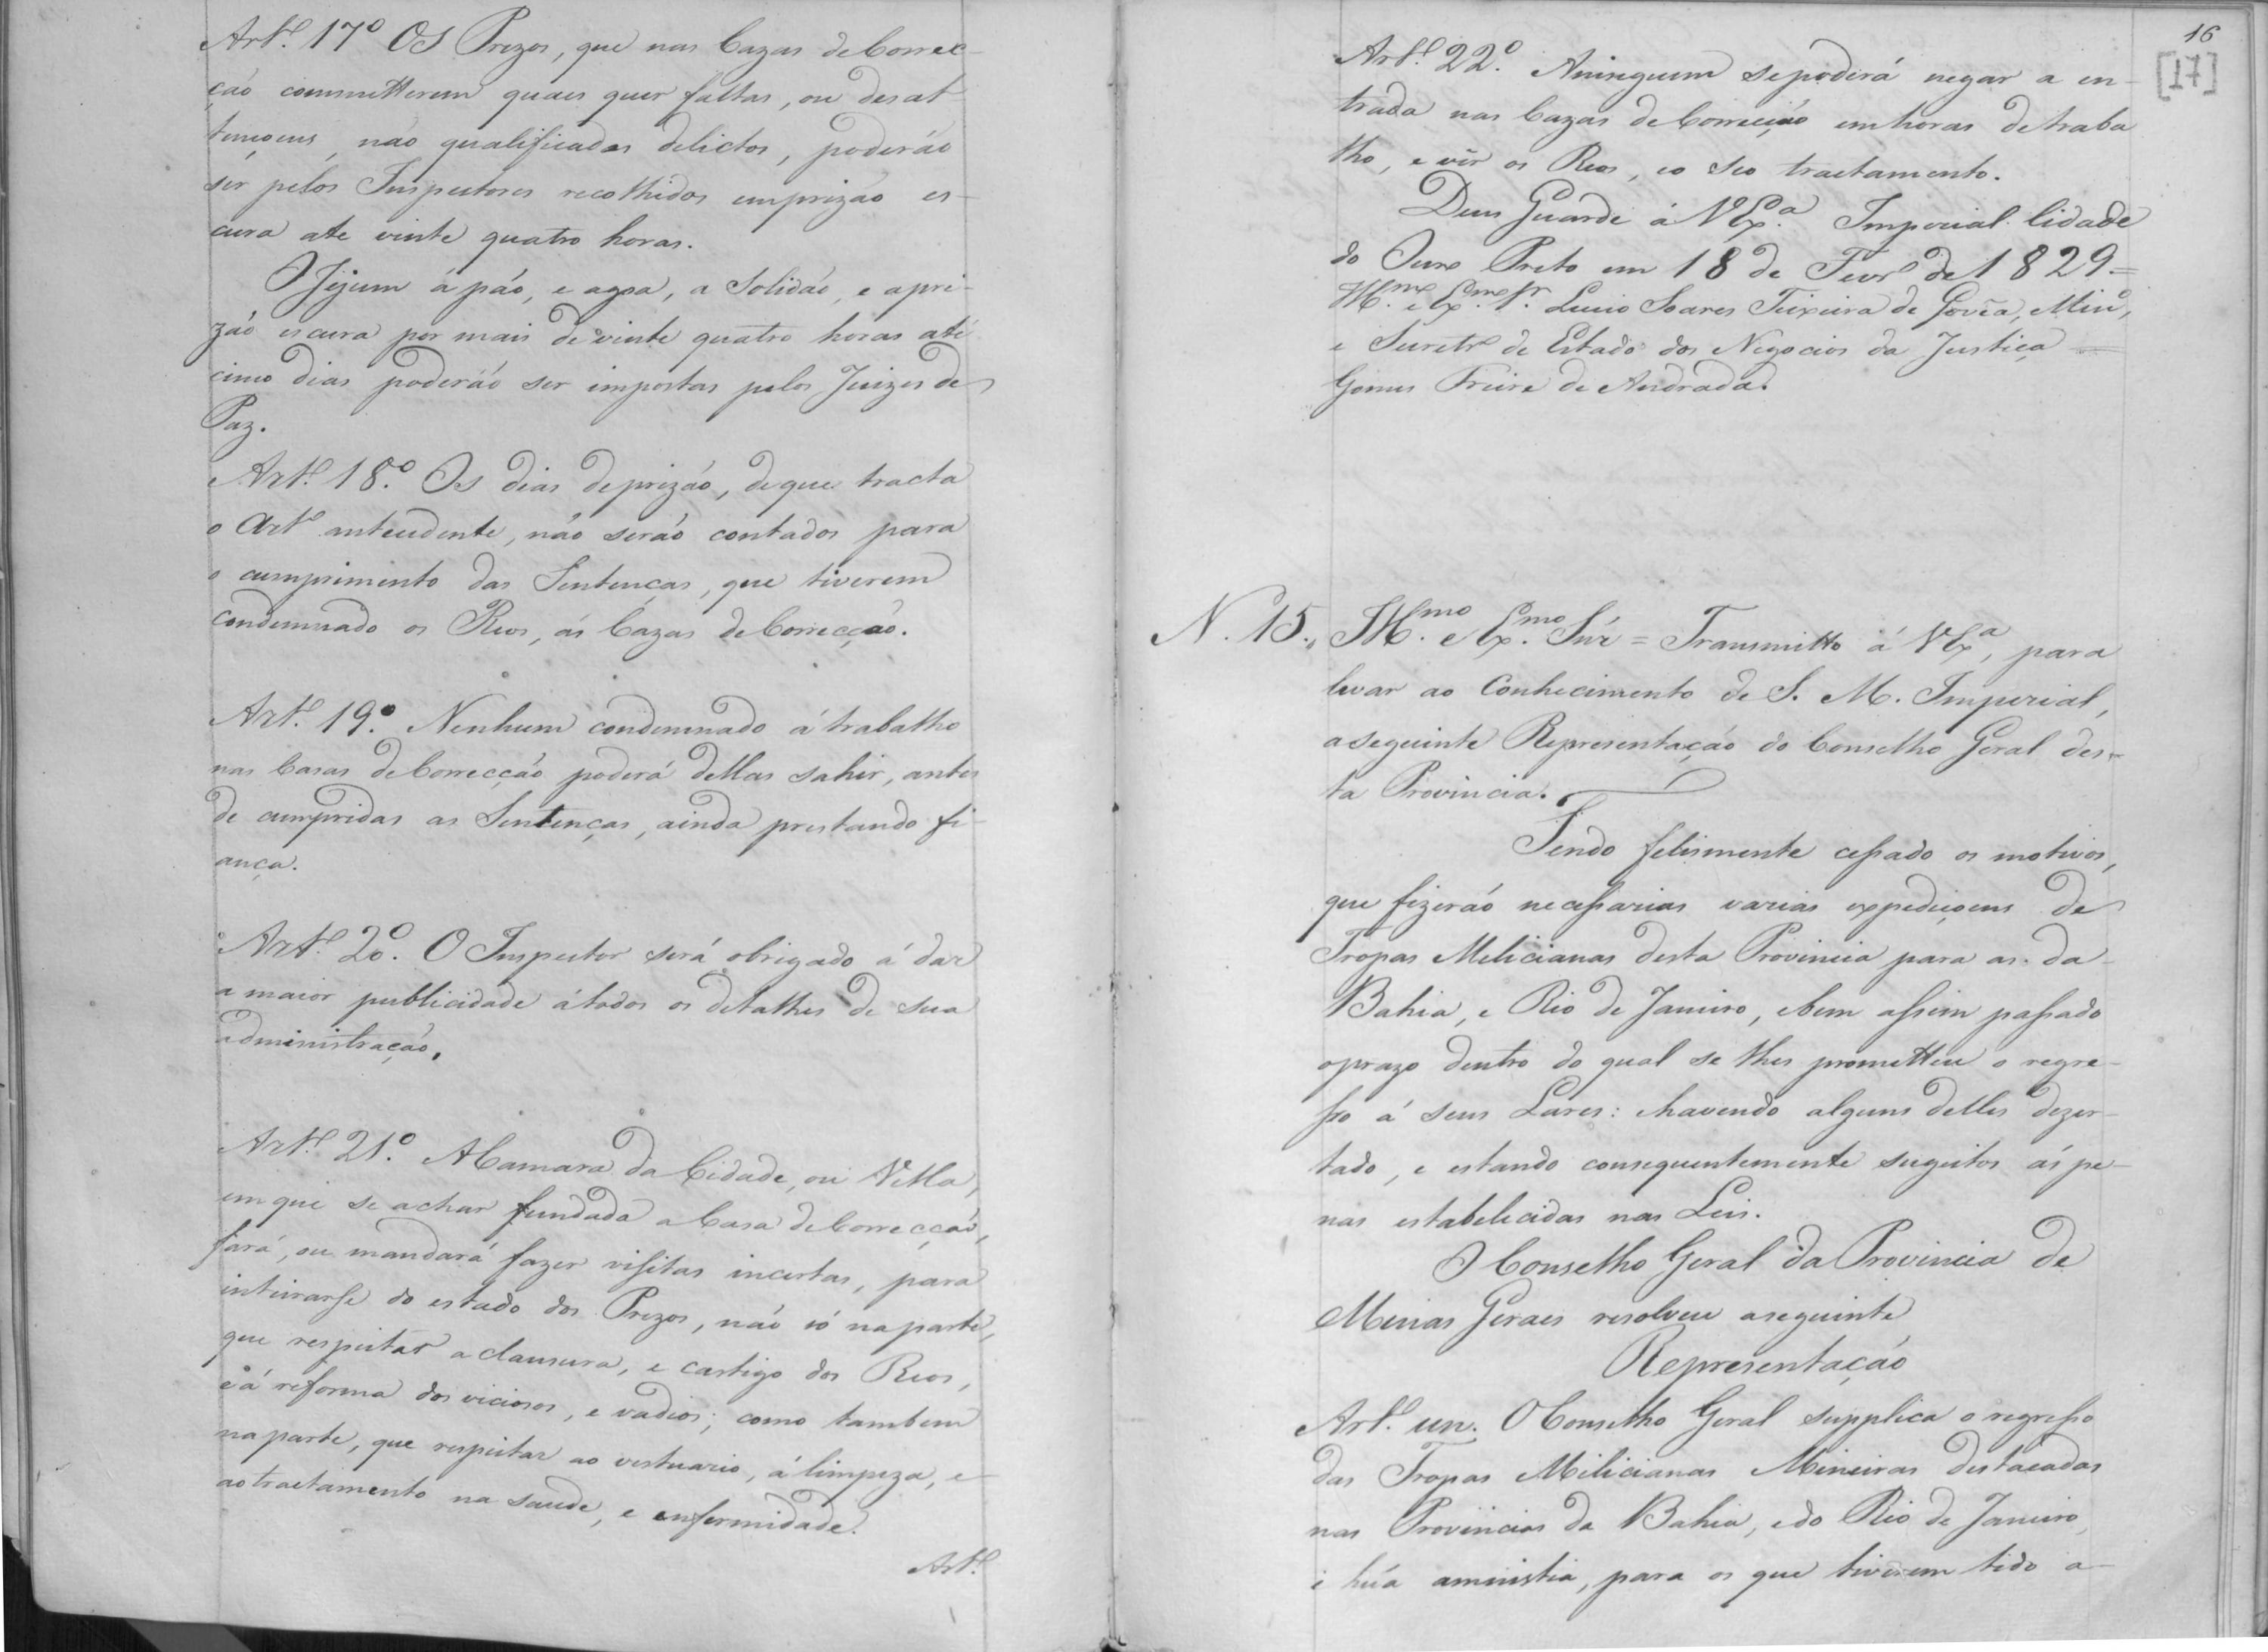 Art.º 17º OS Prezos, que nas Cazas de Correc-
çáo commetterem quaes quer faltas, ou desat-
tençoens, náo qualificadas delictos, poderáo
ser pelos Inspectores recolhidos emprizáo es-
cura ate vinte quatro horas.
O Jejum á páo, e agoa, a Solidáo, e apri-
záo escura por mais de vinte quatro horas até
cinco dias poderáó ser impostas pelos Juizes de
Paz.
Art.º 18.º Os dias deprizáo, deque tracta
o Artº antecedente, náo seráó contados para
o cumprimento das Sentenças, que tiverem
condemnado os Reos, ás Cazas de Correcçáo.
Art.º 19.º Nenhum condemnado á trabalho
nas Casas de Correcçáo poderá dellas sahir, antes
de cumpridas as Sentenças, ainda prestando fi-
ança.
Art.º 20.º O Inspector será obrigado á dar
a maior publicidade átodos os detalhes de sua
administraçáo.
Art.º 21.º A Camara da Cidade, ou Villa,
em que se achar fundada a Casa de Correcçáo,
fará, ou mandará fazer visitas incertas, para
inteirarse do estado dos Prezos, náo só na parte,
que respeitar a clausura, e castigo dos Reos,
e á reforma dos viciosos, e vadios; como tambem
na parte, que respeitar ao vestuario, á limpeza, e
ao tractamento na saude, e enfermidade.
Art.º
16
[17]
Art.º 22.º Aninguem sepoderá negar a en-
trada nas Cazas de Correiçáo emhoras detraba
lho, e vêr os Reos, eo seo tractamento.
Deus Guarde á VExª. Imperial Cidade
do Ouro Preto em 18 de Fevrº de 1829=
Illmº. e Exmº. Sr. Lucio Soares Teixeira de Govêa, Minº,
e Secretrº de Estado dos Negocios da Justiça =
Gomes Freire de Andrada.
N. 15., Illmo. e Exmo. Snr = Transmitto á VExª, para
levar ao Conhecimento de S. M. Imperial,
aseguinte Representaçáo do Conselho Geral des-
ta Provincia.
Tendo felismente cessado os motivos,
que fizeráó necessarias varias expediçoens de
Tropas Milicianas desta Provincia para as da
Bahia, e Rio de Janeiro, ebem assim passado
oprazo dentro do qual se lhes prometteu o regre-
sso á seus Lares: ehavendo alguns delles dezer-
tado, e estando consequentemente sugeitos ás pe-
nas estabelecidas nas Leis.
O Conselho Geral da Provincia de
Minas Geraes resolveu aseguinte
Representaçáo
Art.º un. O Conselho Geral supplica o regresso
das Tropas Milicianas Mineiras destacadas
nas Provincias da Bahia, edo Rio de Janeiro,
e húa amnistia, para os que tiverem tido a-